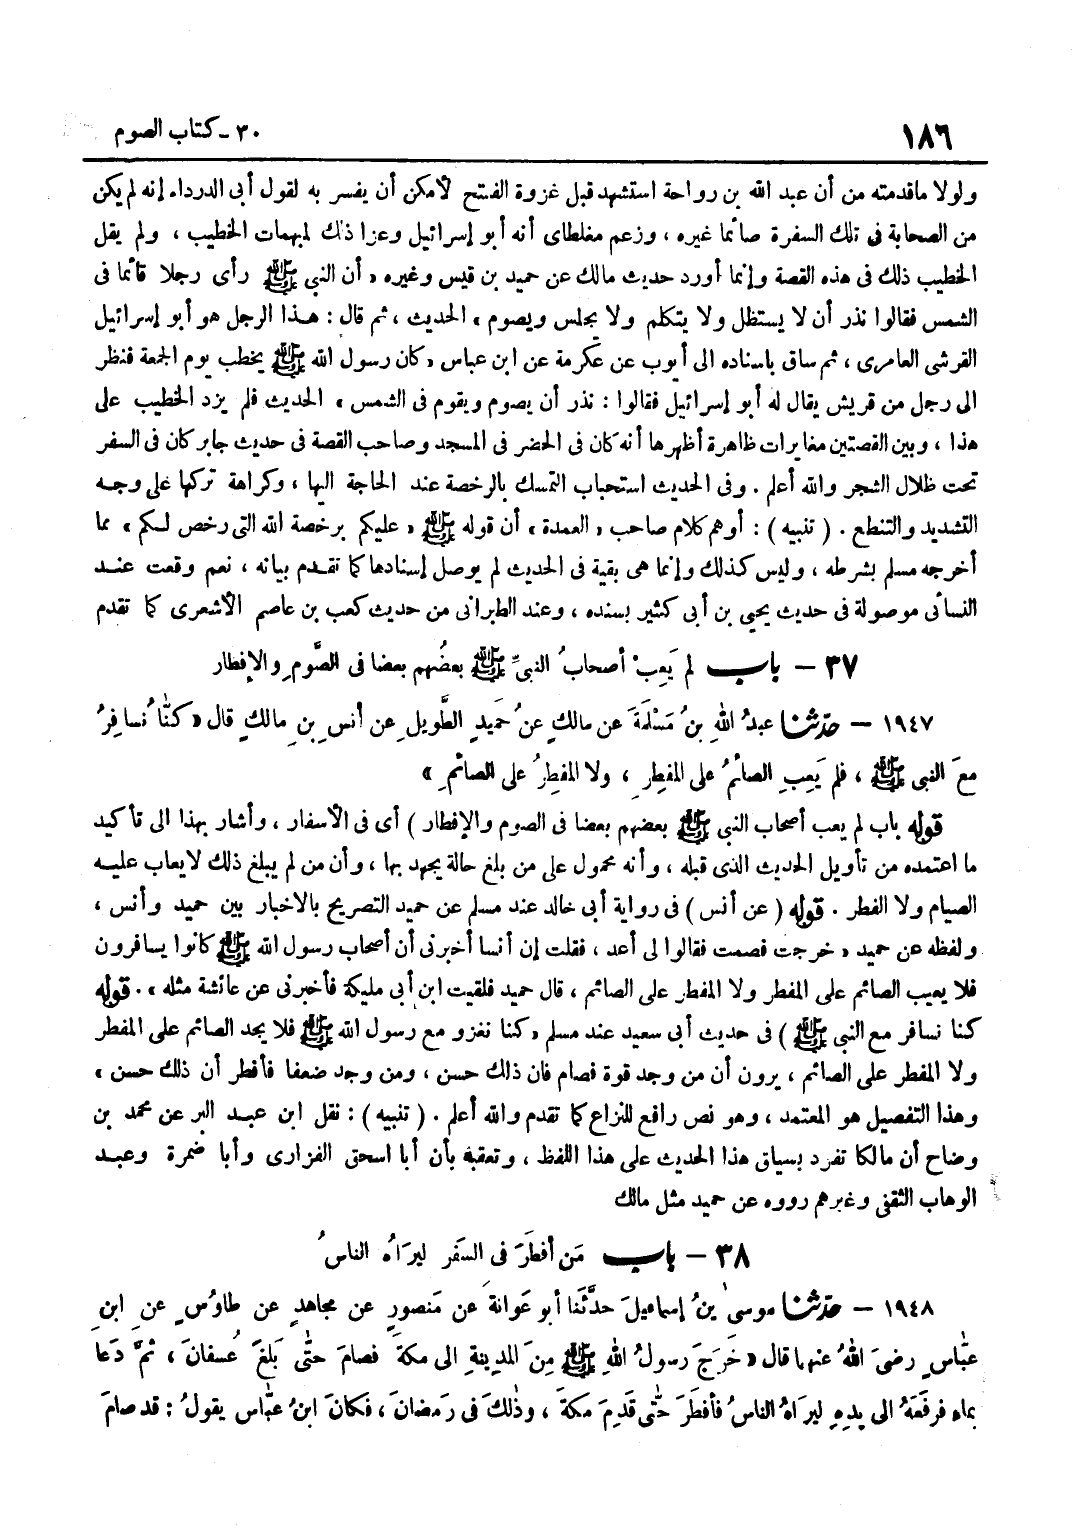 ١٨٦ ٣٠ - كتاب الصوم
ولولا ما قدمته من أن عبد الله بن رواحة استشهد قبل غزوة الفتح لأمكن أن يفسر به لقول أبى الدرداء إنه لم يكن
من الصحابة فى تلك السفرة صائما غيره ، وزعم مغلطاى أنه أبو إسرائيل وعزا ذلك لمبهمات الخطيب ، ولم يقل
الخطيب ذلك فى هذه القصة وإنما أورد حديث مالك عن حميد بن قيس وغيره « أن النبى ﷺ رأى رجلا قائما فى
الشمس فقالوا نذر أن لا يستظل ولا يتكلم ولا يجلس ويصوم » الحديث ، ثم قال : هذا الرجل هو أبو إسرائيل
القرشى العامرى ، ثم ساق باسناده الى أيوب عن عكرمة عن ابن عباس « كان رسول الله ﷺ يخطب يوم الجمعة فنظر
الى رجل من قريش يقال له أبو إسرائيل فقالوا : نذر أن يصوم ويقوم فى الشمس » الحديث فلم يزد الخطيب على
هذا ، وبين القصتين مغايرات ظاهرة أظهرها أنه كان فى الحضر فى المسجد وصاحب القصة فى حديث جابر كان فى السفر
تحت ظلال الشجر والله أعلم . وفى الحديث استحباب التمسك بالرخصة عند الحاجة اليها ، وكراهة تركها على وجه
التشديد والتنطع . ( تنبيه ) : أوهم كلام صاحب « العمدة » أن قوله ﷺ « عليكم برخصة الله التى رخص لكم » مما
أخرجه مسلم بشرطه ، وليس كذلك وإنما هى بقية فى الحديث لم يوصل إسنادها كما تقدم بيانه ، نعم وقعت عند
النسائى موصولة فى حديث يحيى بن أبى كثير بسنده ، وعند الطبرانى من حديث كعب بن عاصم الأشعرى كما تقدم
٣٧ - باب لم يَعِبْ أصحابُ النبىِّ ﷺ بعضُهم بعضا فى الصَّومِ والإفطار
١٩٤٧ - حدّثنا عبدُ اللهِ بنُ مَسْلَمَةَ عن مالكٍ عنْ حُمَيدٍ الطَّويلِ عن أنسِ بنِ مالكٍ قال « كنَّا نُسافِرُ
معَ النبى ﷺ ، فلم يَعِبِ الصائمُ على المفطِرِ ، ولا المفطِرُ على الصائمِ »
قوله باب لم يعب أصحاب النبى ﷺ بعضهم بعضا فى الصوم والإفطار ) أى فى الأسفار ، وأشار بهذا الى تأكيد
ما اعتمده من تأويل الحديث الذى قبله ، وأنه محمول على من بلغ حالة يجهد بها ، وأن من لم يبلغ ذلك لا يعاب عليه
الصيام ولا الفطر . قوله ( عن أنس ) فى رواية أبى خالد عند مسلم عن حميد التصريح بالاخبار بين حميد وأنس ،
ولفظه عن حميد « خرجت فصمت فقالوا لى أعد ، فقلت إن أنسا أخبرنى أن أصحاب رسول الله ﷺ كانوا يسافرون
فلا يعيب الصائم على المفطر ولا المفطر على الصائم ، قال حميد فلقيت ابن أبى مليكة فأخبرنى عن عائشة مثله » . قوله
كنا نسافر مع النبى ﷺ ) فى حديث أبى سعيد عند مسلم « كنا نغزو مع رسول الله ﷺ فلا يجد الصائم على المفطر
ولا المفطر على الصائم ، يرون أن من وجد قوة فصام فان ذلك حسن ، ومن وجد ضعفا فأفطر أن ذلك حسن »
وهذا التفصيل هو المعتمد ، وهو نص رافع للنزاع كما تقدم والله أعلم . ( تنبيه ) : نقل ابن عبد البر عن محمد بن
وضاح أن مالكا تفرد بسياق هذا الحديث على هذا اللفظ ، وتعقبه بأن أبا اسحق الفزارى وأبا ضمرة وعبد
الوهاب الثقفى وغيرهم رووه عن حميد مثل مالك
٣٨ - باب مَن أفطَرَ فى السفَر ليرَاهُ الناسُ
١٩٤٨ - حدّثنا موسى بنُ إسماعيلَ حدَّثَنا أبو عَوانةَ عن مَنصورٍ عن مجاهدٍ عن طاوُسٍ عنِ ابنِ
عبّاسٍ رضىَ اللهُ عنهما قال « خَرَجَ رسولُ اللهِ ﷺ مِنَ المدينةِ الى مكةَ فصامَ حتّى بَلغَ عُسفانَ ، ثمَّ دَعا
بماءٍ فرفَعَهُ الى يدِهِ ليرَاهُ الناسُ فأفطَرَ حتّى قدِمَ مكةَ ، وذلكَ فى رَمضانَ ، فكانَ ابنُ عبّاسٍ يقولُ : قد صامَ